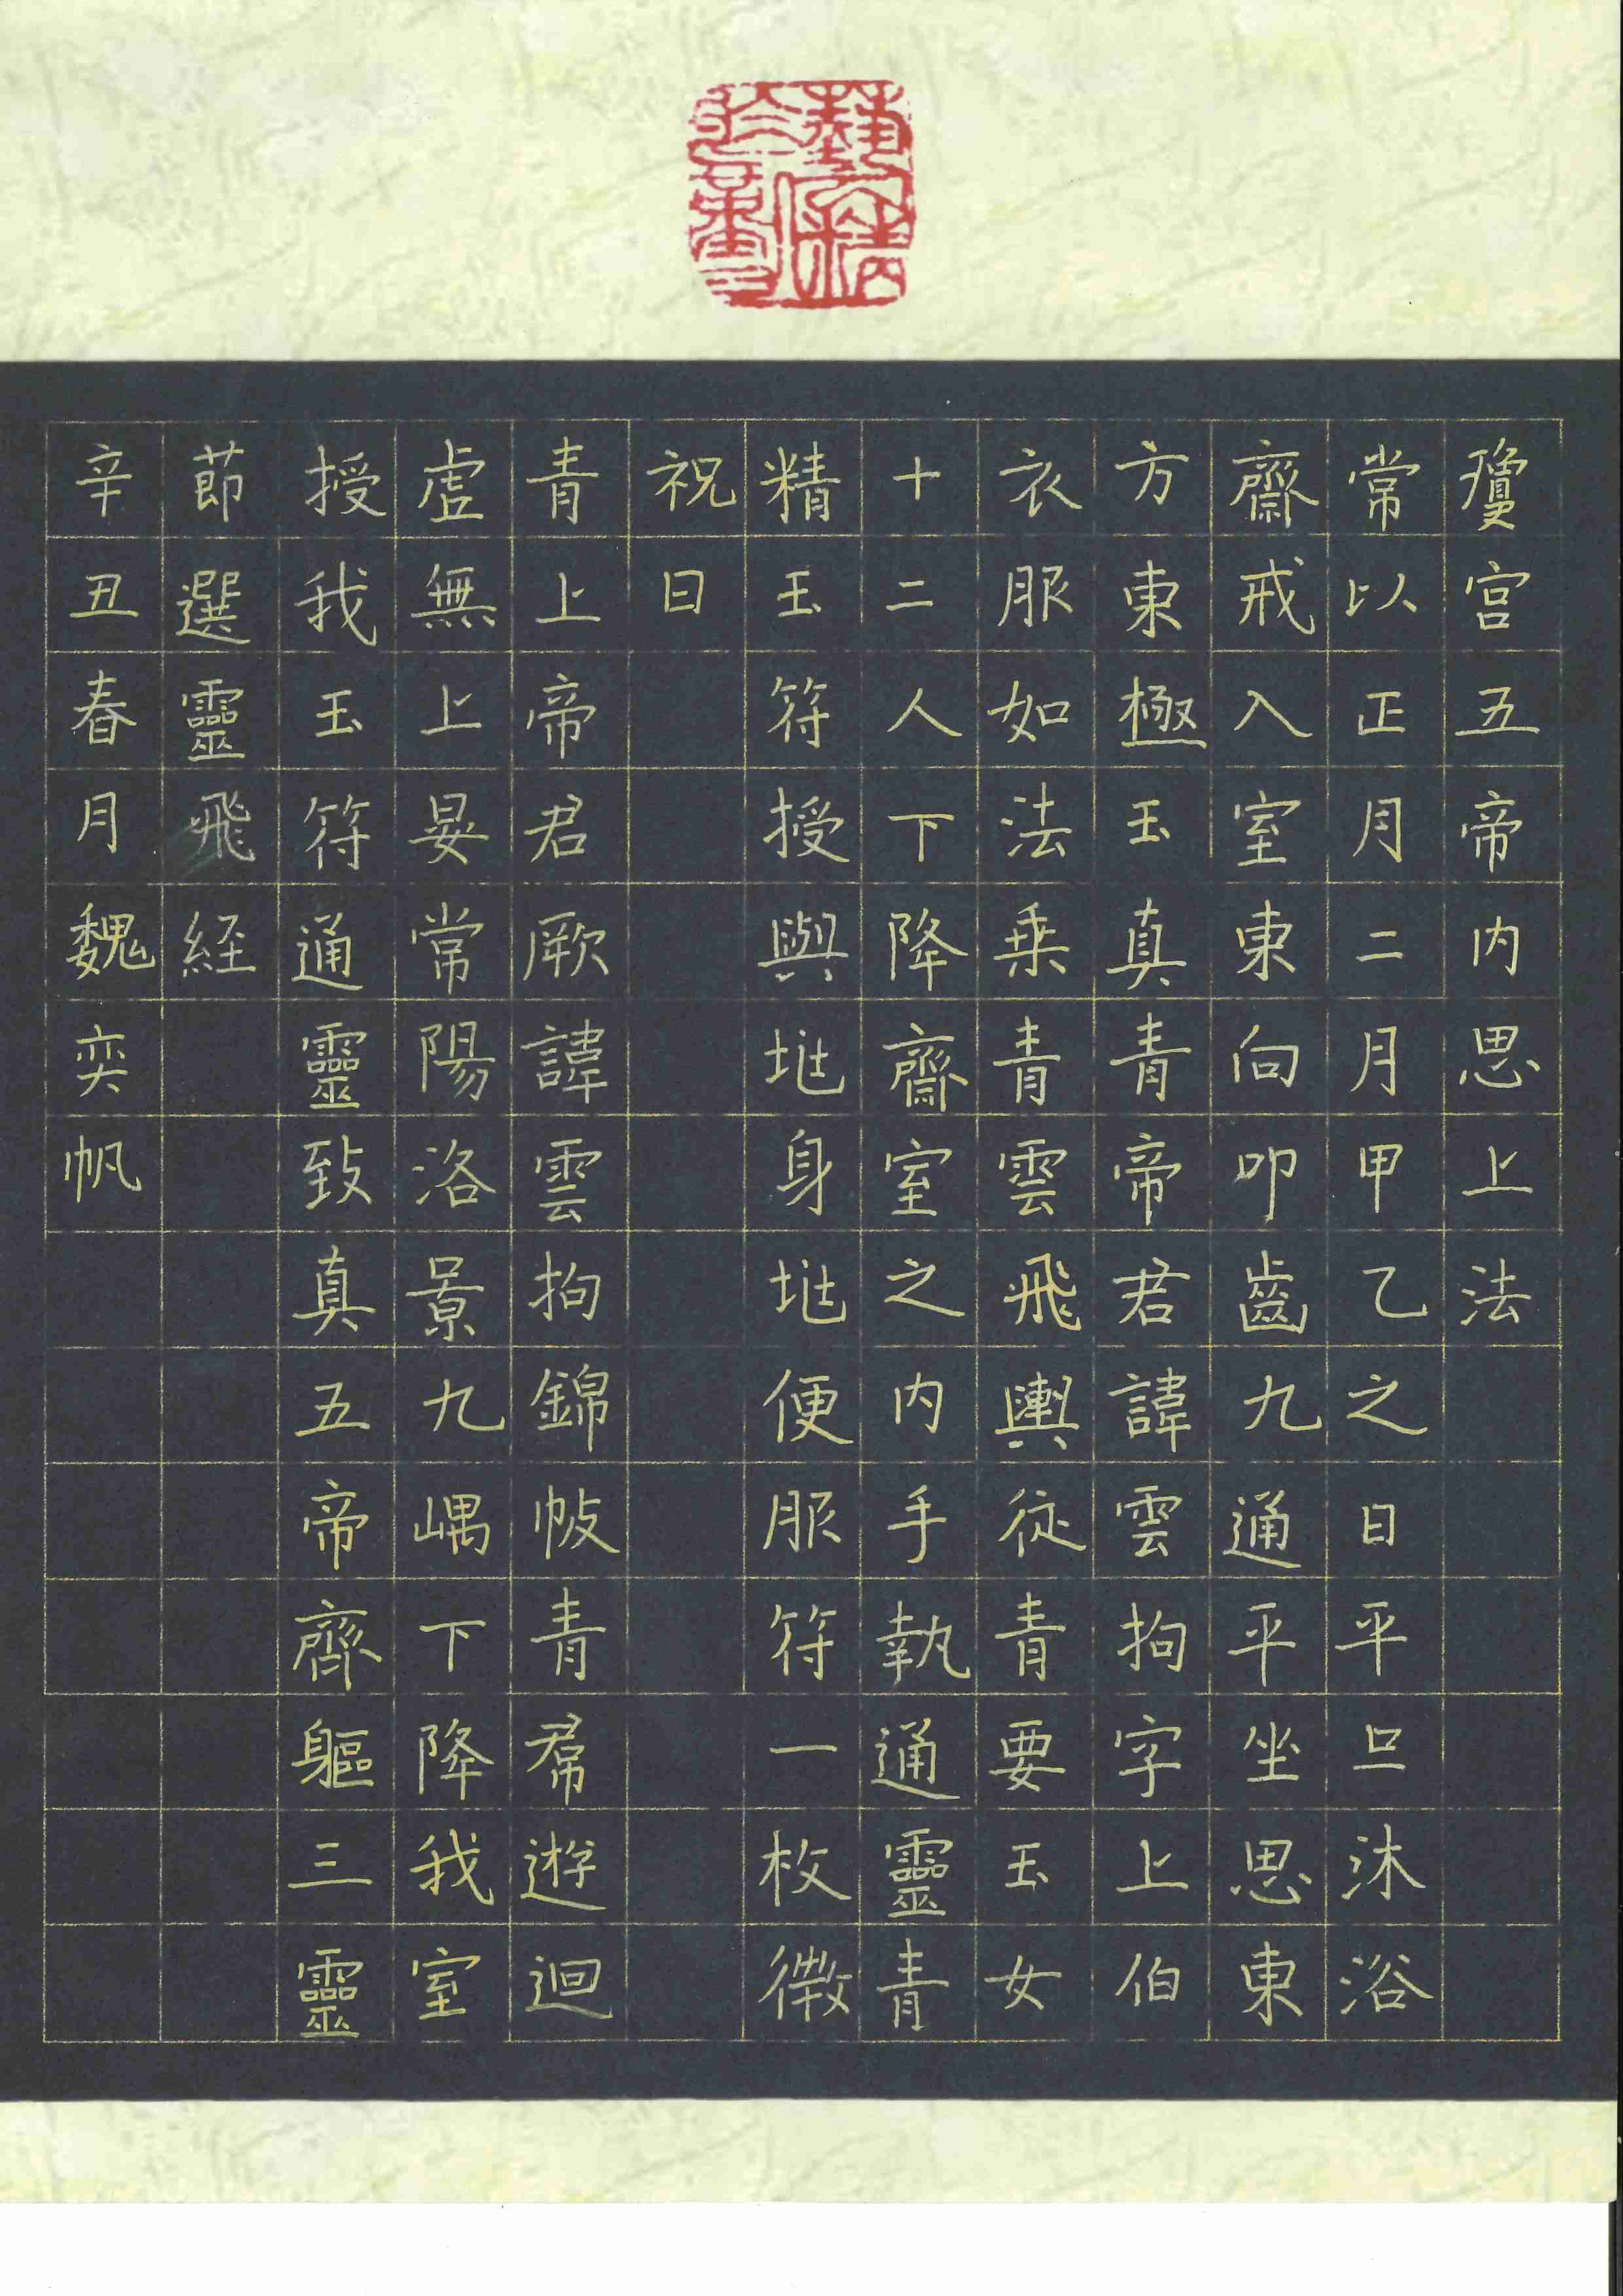 瓊宮五帝内思上法
常以正月二月甲乙之日平旦沐浴
齋戒入室東向叩齒九通平坐思東
方東極玉真青帝君諱雲拘字上伯
衣服如法乘青雲飛輿從青要玉女
十二人下降齋室之内手執通靈青
精玉符授與垗身垗便服符一枚微
祝曰
青上帝君厥諱雲拘錦帔青帬遊迴
虛無上晏常陽洛景九嵎下降我室
授我玉符通靈致真五帝齊軀三靈
節選靈飛経
辛丑春月魏奕帆